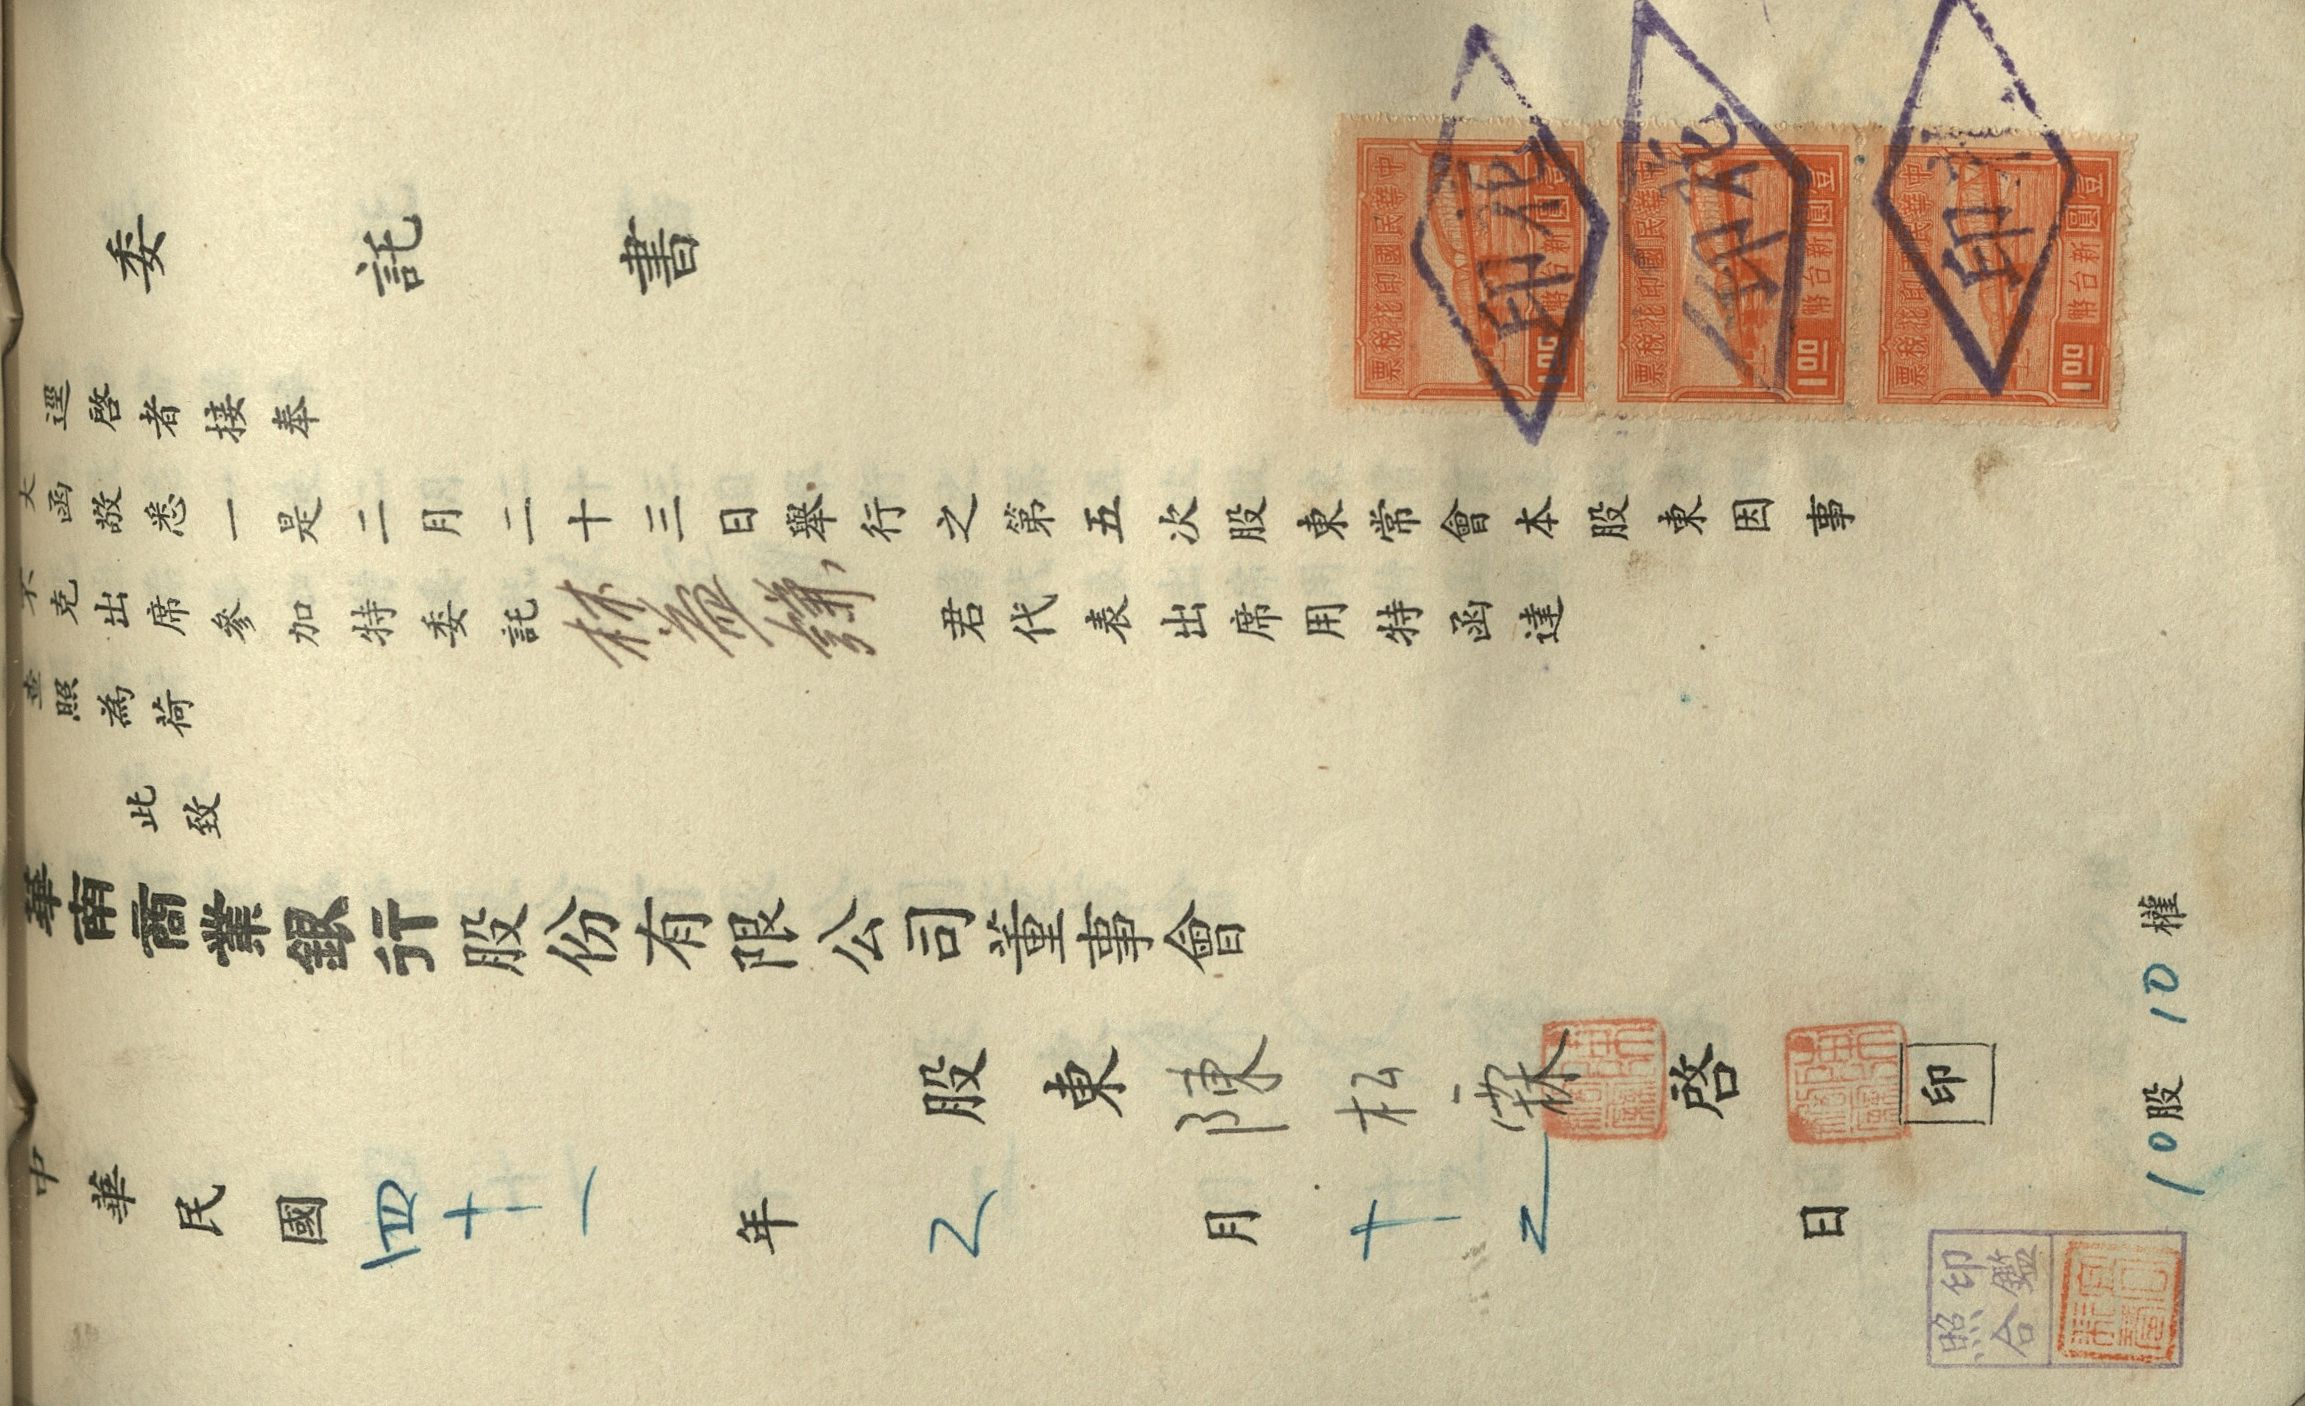 委託書
逕啓者接奉
大函敬悉一是二月二十三日舉行之第五次股東常會本股東因事
不克出席參加特委託林益謙君代表出席用特函達
查照為荷
此致
華南商業銀行股份有限公司董事會
股東陳松霖啓
印
中華民國四十一年2月十2日
10股10權
中華民國印花稅票
壹圓新台幣
1.00
中華民國印花稅票
壹圓新台幣
1.00
中華民國印花稅票
壹圓新台幣
1.00
印花
印花
印花
印鑑
照合